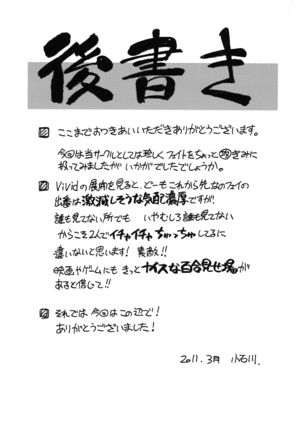 後書き
ここまでおつきあいいただきありがとうございます。
今回は当サークルとしては珍しくフェイトをちょっとぎみに
扱ってみましたがいかがでしたでしょうか。
Vividの展開を見ると、どーもこれから先なのフェイの
出番は激減しそうな気配濃厚ですが
誰も見てない所でも いやむしろ誰も見てない
からこそ2人でイチャイチャちゅっちゅしてるに
違いないと思います! 素敵!!
映画やゲームにもきっとナイスな百合見せ場が
あると信じて!!
それでは今回はこの辺で!
ありがとうございました!
2011.3月 小石川